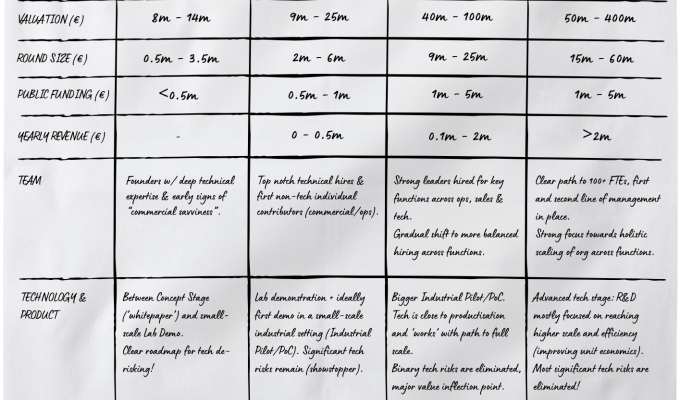 VALUATION (€) 8m - 14m 9m - 25m 40m - 100m 50m - 400m
ROUND SIZE (€) 0.5m - 3.5m 2m - 6m 9m - 25m 15m - 60m
PUBLIC FUNDING (€) <0.5m 0.5m - 1m 1m - 5m 1m - 5m
YEARLY REVENUE (€) - 0 - 0.5m 0.1m - 2m >2m
TEAM
Founders w/ deep technical
expertise & early signs of
"commercial savviness".
Top notch technical hires &
first non-tech individual
contributors (commercial/ops).
Strong leaders hired for key
functions across ops, sales &
tech.
Gradual shift to more balanced
hiring across functions.
Clear path to 100+ FTEs, first
and second line of management
in place.
Strong focus towards holistic
scaling of org across functions.
TECHNOLOGY &
PRODUCT
Between Concept Stage
('whitepaper') and small-
scale Lab Demo.
Clear roadmap for tech de-
risking!
Lab demonstration + ideally
first demo in a small-scale
industrial setting (Industrial
Pilot/PoC). Significant tech
risks remain (showstopper).
Bigger Industrial Pilot/PoC.
Tech is close to productisation
and 'works' with path to full
scale.
Binary tech risks are eliminated,
major value inflection point.
Advanced tech stage: R&D
mostly focused on reaching
higher scale and efficiency
(improving unit economics).
Most significant tech risks are
eliminated!